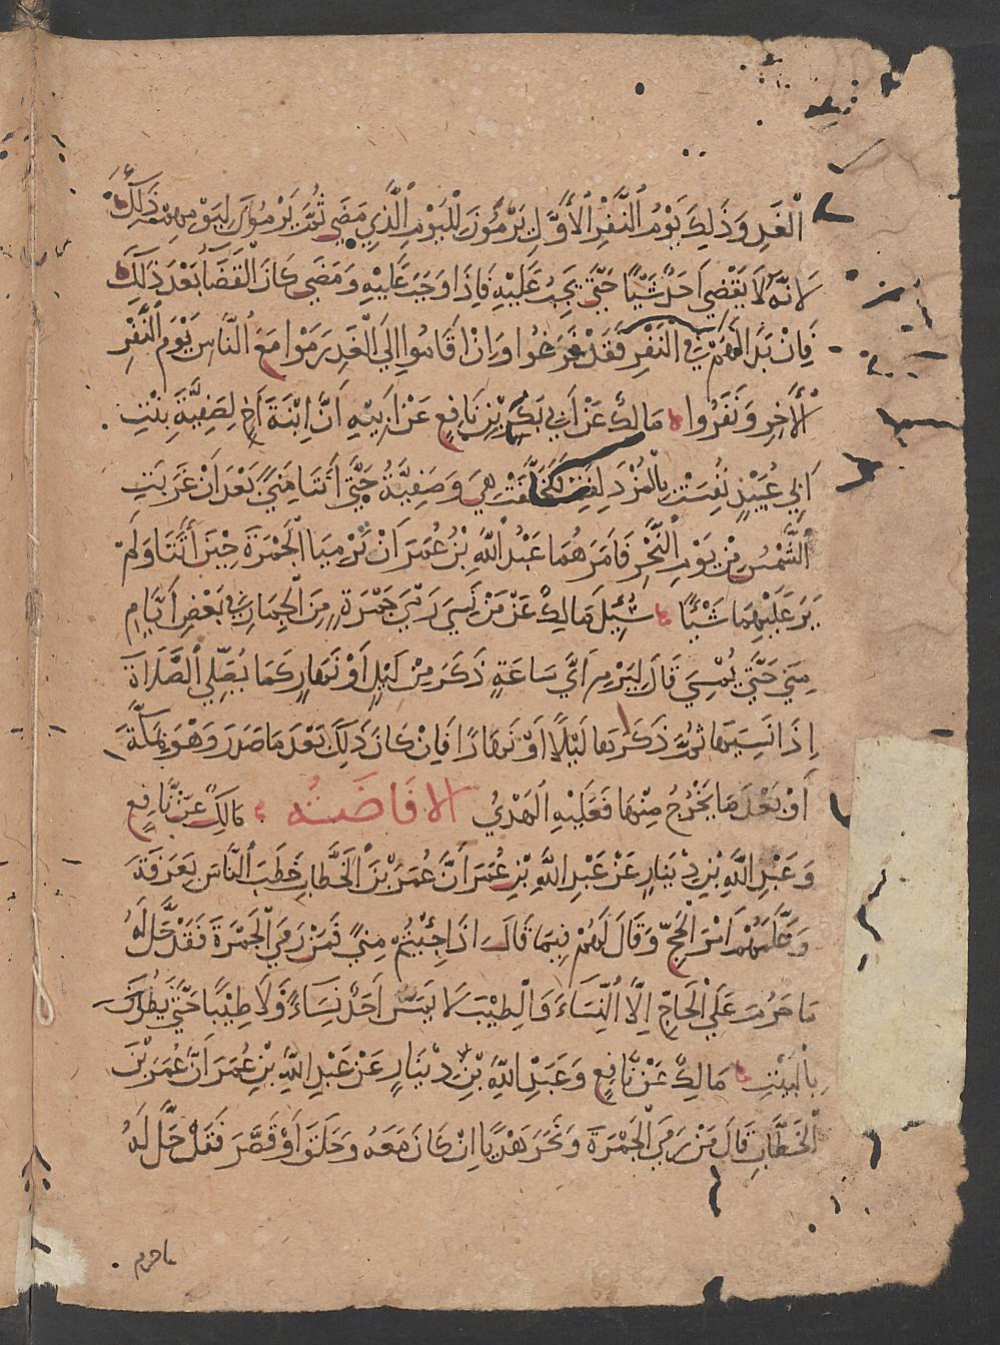 الْغَدِ وَذَلِكَ يَوْمُ النَّفْرِ الْأَوَّلِ يَرْمُونَ لِلْيَوْمِ الَّذِي مَضَى ثُمَّ يَرْمُونَ لِيَوْمِهِمْ ذَلِكَ
لَانَّهُ لَا يَقْضِي أَحَدٌ شَيْئًا حَتَّى يَجِبُ عَلَيْهِ فَإِذَا وَجَبَ عَلَيْهِ وَمَضَى كَانَ الْقَضَاءُ بَعْدَ ذَلِكَ
فَإِنْ بَدَا لَهُمْ فِي النَّفْرِ فَقَدْ فَرَغُوا وَإِنْ أَقَامُوا إِلَى الْغَدِ رَمَوْا مَعَ النَّاسِ يَوْمَ النَّفْرِ
الْأَخِرِ وَنَفَرُوا مَالِكٌ عَنْ أَبِي بَكْرِ بْنِ نَافِعٍ عَنْ أَبِيهِ أَنَّ ابْنَةَ أَخٍ لِصَفِيَّةَ بِنْتِ
أَبِي عُبَيْدٍ نُفِسَتْ بِالْمُزْدَلِفَةِ فَتَخَلَّفَتْ هِيَ وَصَفِيَّةُ حَتَّى أَتَتَا مِنًى بَعْدَ أَنْ غَرَبَتِ
الشَّمْسُ مِنْ يَوْمِ النَّحْرِ فَأَمَرَهُمَا عَبْدُ اللَّهِ بْنُ عُمَرَ أَنْ تَرْمِيَا الْجَمْرَةَ حِينَ أَتَتَا وَلَمْ
يَرَ عَلَيْهِمَا شَيْئًا سُئِلَ مَالِكٌ عَنْ مَنْ نَسِيَ رَمْيَ جَمْرَةٍ مِنَ الْجِمَارِ فِي بَعْضِ أَيَّامِ
مِنَى حَتَّى يُمْسِيَ قَالَ لِيَرْمِ أَيَّ سَاعَةٍ ذَكَرَ مِنْ لَيْلٍ أَوْ نَهَارٍ كَمَا يُصَلِّي الصَّلَاةَ
إِذَا نَسِيَهَا ثُمَّ ذَكَرَهَا لَيْلًا أَوْ نَهَارًا فَإِنْ كَانَ ذَلِكَ بَعْدَ مَا صَدَرَ وَهُوَ بِمَكَّةَ
أَوْ بَعْدَ مَا يَخْرُجُ مِنْهَا فَعَلَيْهِ الْهَدْيُ الافَاضَةُ مَالِكٌ عَنْ نَافِعٍ
وَعَبْدِ اللَّهِ بْنِ دِينَارٍ عَنْ عَبْدِ اللَّهِ بْنِ عُمَرَ أَنَّ عُمَرَ بْنَ الْخَطَّابِ خَطَبَ النَّاسَ بِعَرَفَةَ
وَعَلَّمَهُمْ أَمْرَ الْحَجِّ وَقَالَ لَهُمْ فِيمَا قَالَ إِذَا جِئْتُمْ مِنًى فَمَنْ رَمَى الْجَمْرَةَ فَقَدْ حَلَّ لَهُ
مَا حَرُمَ عَلَى الْحَاجِّ إِلَّا النِّسَاءَ وَالطِّيبَ لَا يَمَسَّ أَحَدٌ نِسَاءً وَلَا طِيبًا حَتَّى يَطُوفَ
بِالْبَيْتِ مَالِكٌ عَنْ نَافِعٍ وَعَبْدِ اللَّهِ بْنِ دِينَارٍ عَنْ عَبْدِ اللَّهِ بْنِ عُمَرَ أَنَّ عُمَرَ بْنَ
الْخَطَّابِ قَالَ مَنْ رَمَى الْجَمْرَةَ وَنَحَرَ هَدْيًا إِنْ كَانَ مَعَهُ وَحَلَقَ أَوْ قَصَّرَ فَقَدْ حَلَّ لَهُ
ما حرم